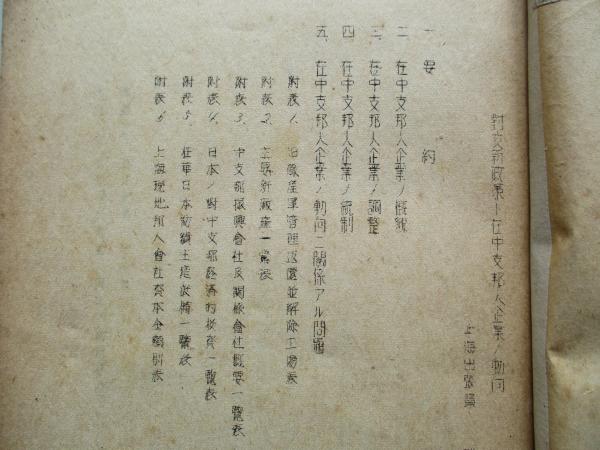 對支新政策ト在中支邦人企業ノ動向
上海出張員
一 要約
二、在中支邦人企業ノ概貌
三、在中支邦人企業ノ調整
四、在中支邦人企業ノ統制
五、在中支邦人企業ノ動向ニ關係アル問題
附表1. 軍管理返還並解除工場表
附表2. 一覧表
附表3. 中支那振興會社及關係會社概要一覧表
附表4. 日本ノ對中支那經濟的投資一覧表
附表5. 在華日本紡績 一覧表
附表6. 上海現地邦人會社資本金額別表